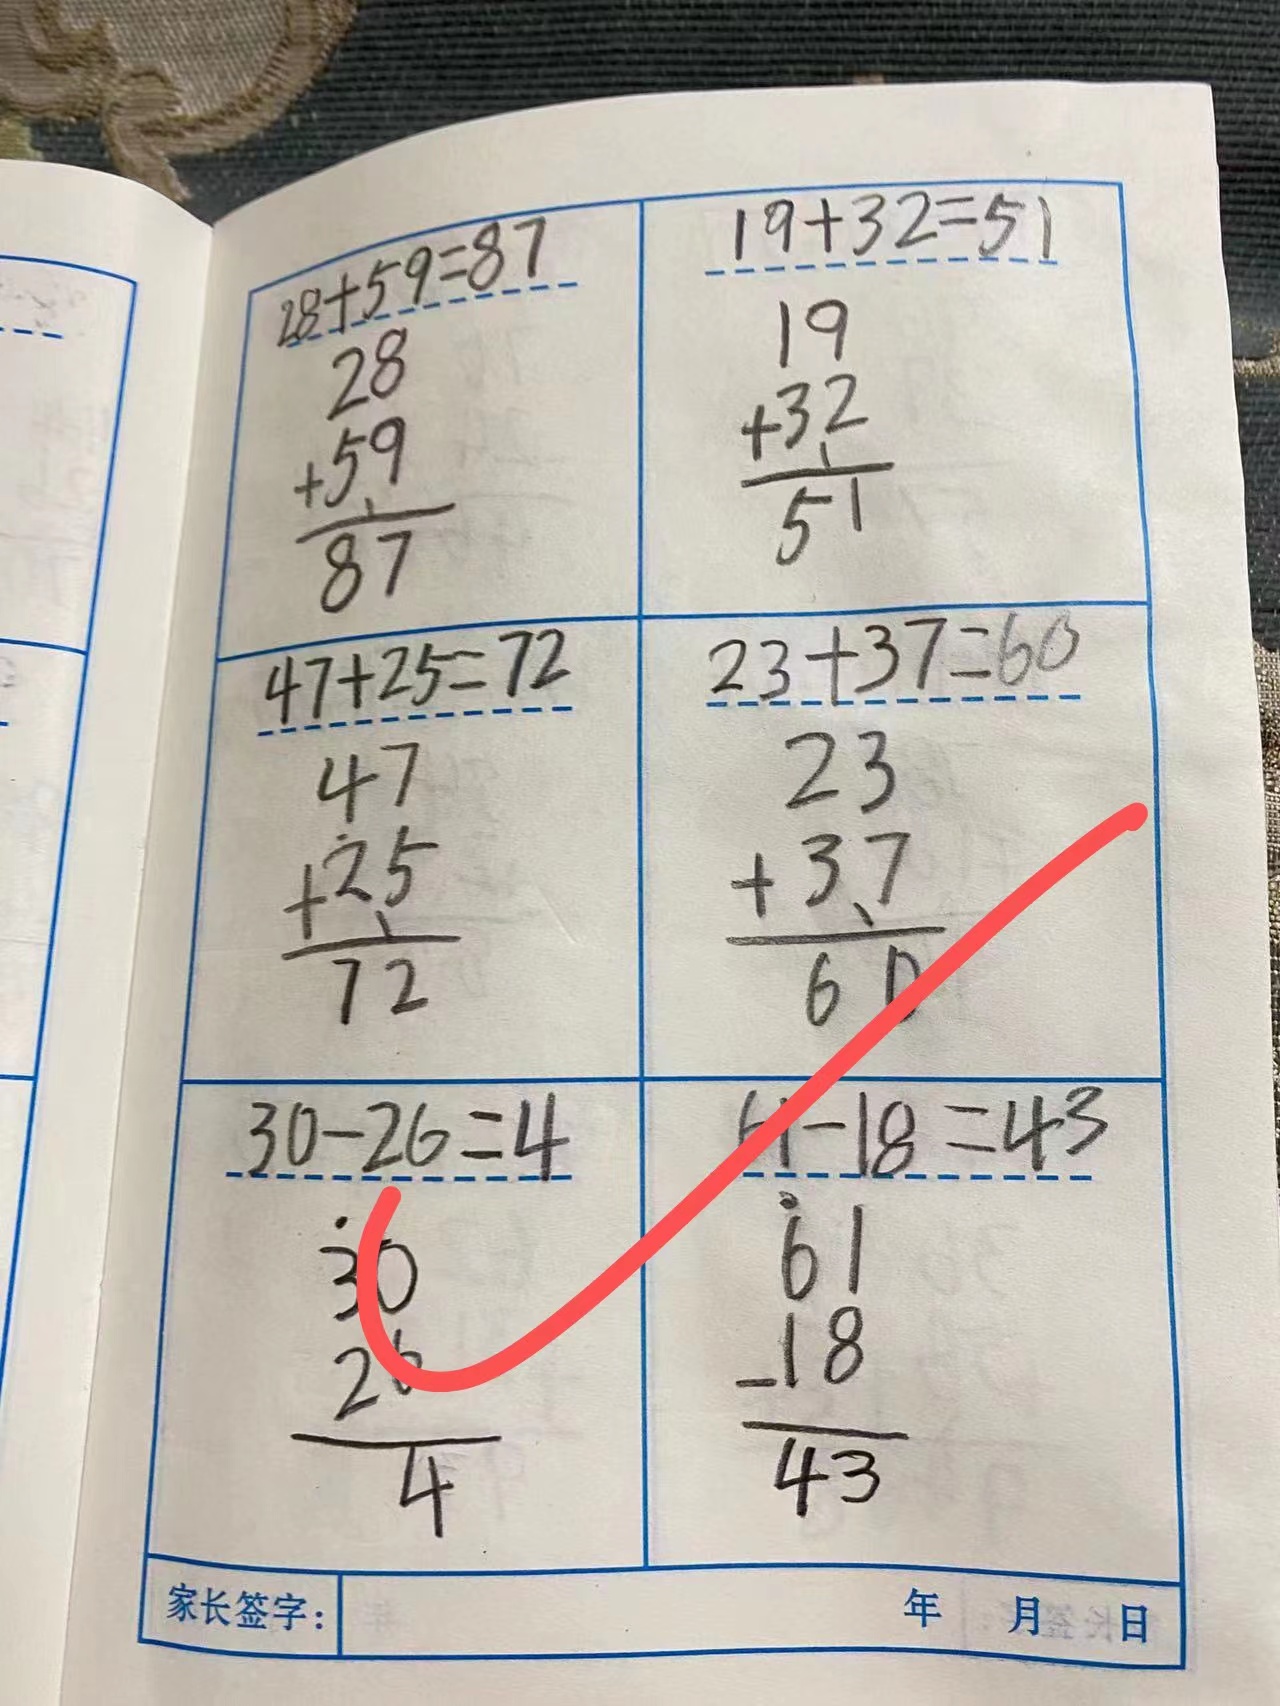 28+59=87
28
+59
87
19+32=51
19
+32
51
47+25=72
47
+25
72
23+37=60
23
+37
60
30-26=4
30
26
4
61-18=43
61
-18
43
家长签字: 年 月 日